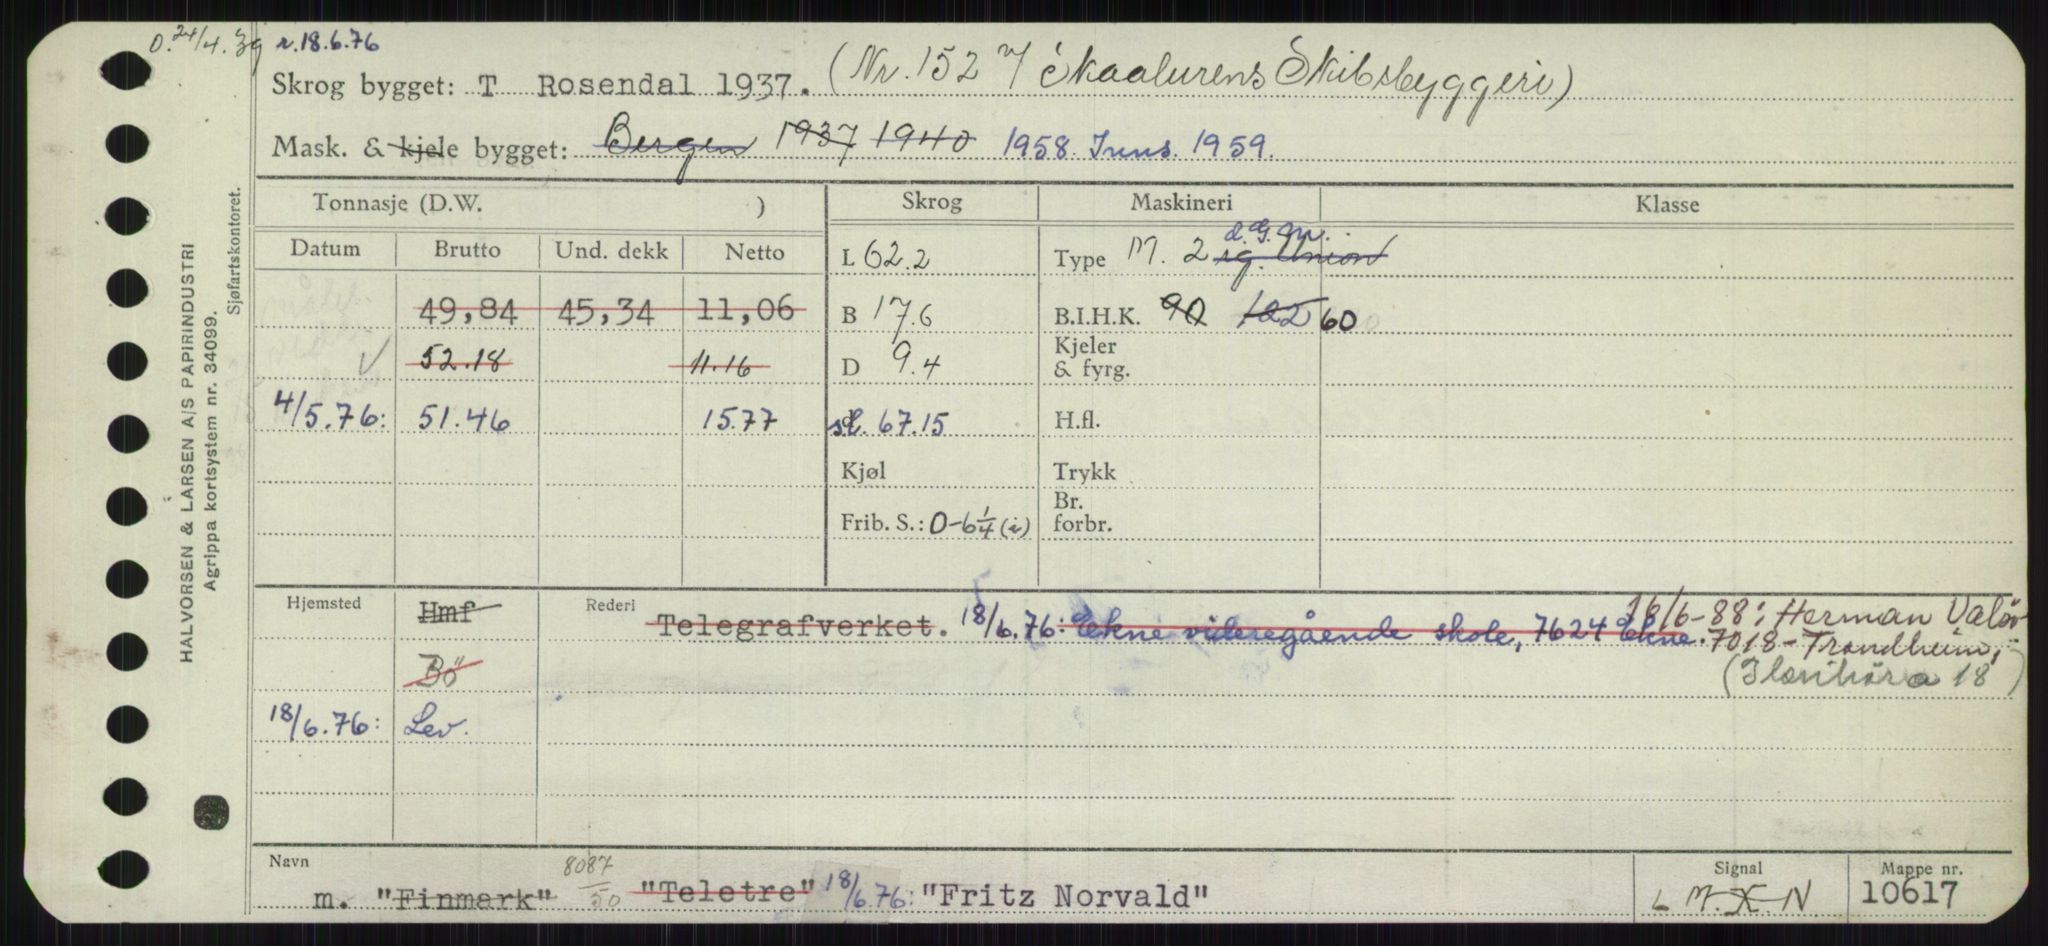 0. 24/4.39 r.18.6.76
Skrog bygget: T Rosendal 1937. (Nr. 152 v/ Skaalurens Skibsbyggeri)
Mask. & kjele bygget: Bergen 1937 1940 1958 Inns. 1959.
HALVORSEN & LARSEN A/S PAPIRINDUSTRI
Agrippa kortsystem nr. 34099.
Sjøfartskontoret.
Tonnasje (D.W. ) Skrog Maskineri Klasse
Datum Brutto Und. dekk Netto L 62.2 Type M. 2 sg. Union
d.G.M.
49,84 45,34 11,06 B 17.6 B.I.H.K. 90 122 60
52.18 11.16 D 9.4 Kjeler & fyrg.
4/5.76: 51.46 15.77 st. 67.15 H.fl.
Kjøl Trykk
Frib. S.: 0-6 1/4 (i) Br. forbr.
Hjemsted Hmf Rederi Telegrafverket. 18/6.76: Ekne videregående skole, 7624 Ekne. 16/6-88: Herman Valö
Bö 7018 - Trondheim,
( 18 )
18/6.76: Lev.
Navn 8087/50 Signal Mappe nr.
m. "Finmark" "Teletre" 18/6.76: "Fritz Norvald" L M.X.N. 10617